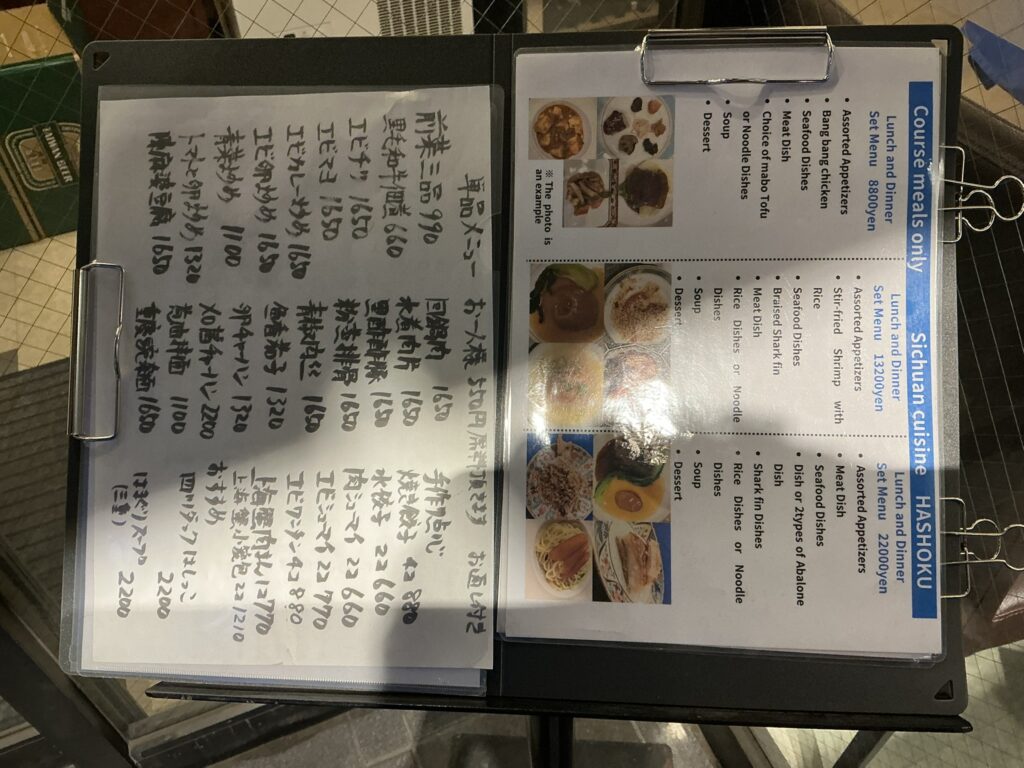 Course meals only Sichuan cuisine HASHOKU
Lunch and Dinner
Set Menu 8800yen
• Assorted Appetizers
• Bang bang chicken
• Seafood Dishes
• Meat Dish
• Choice of mabo Tofu
or Noodle Dishes
• Soup
• Dessert
※ The photo is
an example
Lunch and Dinner
Set Menu 13200yen
• Assorted Appetizers
• Stir-fried Shrimp with
Rice
• Seafood Dishes
• Braised Shark fin
• Meat Dish
• Rice Dishes or Noodle
Dishes
• Soup
• Dessert
Lunch and Dinner
Set Menu 22000yen
• Assorted Appetizers
• Meat Dish
• Seafood Dishes
• Dish or 2types of Abalone
Dish
• Shark fin Dishes
• Rice Dishes or Noodle
Dishes
• Soup
• Dessert
単品メニュー お一人様 550円 頂きます お通し付き
前菜三品 990
660
エビチリ 1650
エビマヨ 1650
エビカレー炒め 1650
エビ卵炒め 1650
青菜炒め 1100
トマトと卵炒め 1320
麻婆豆腐 1650
回鍋肉 1650
水煮肉片 1650
黒酢酢豚 1650
粉蒸排骨 1650
青椒肉丝 1650
魚香茄子 1320
卵チャーハン 1320
チャーハン 2200
葱油拌面 1100
重慶 麺 1650
手作り点心
焼き餃子 4コ 880
水餃子 2コ 660
肉シュウマイ 2コ 660
エビシュウマイ 2コ 770
エビワンタン 4コ 880
上海 肉まん 1コ 770
上海蟹小籠包 2コ 1210
おすすめ
四川ダック はしっこ
2200
スープ
2200